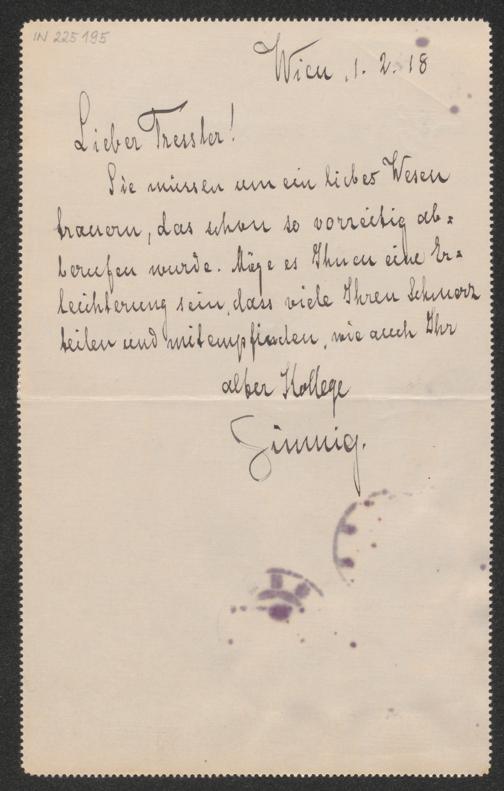 IN 225195
Wien, 1. 2. 18
Lieber Tressler!
Sie müssen um ein liebes Wesen
trauern, das schon so vorzeitig ab=
berufen wurde. Möge es Ihnen eine Er=
leichterung sein, dass viele Ihren Schmerz
teilen und mitempfinden, wie auch Ihr
alter Kollege